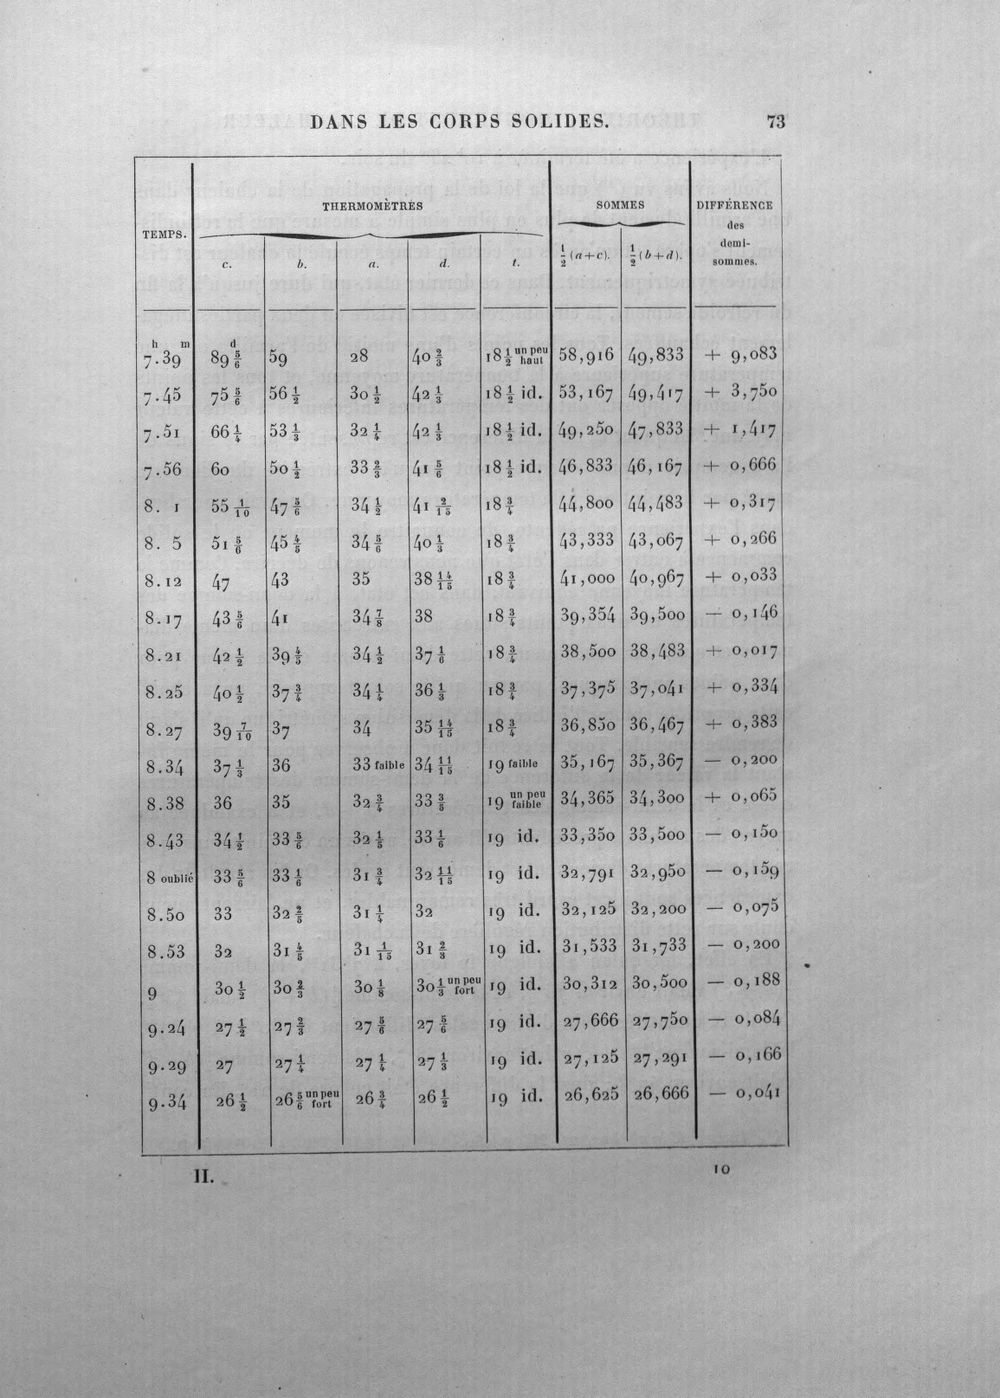 DANS LES CORPS SOLIDES. 73
TEMPS. THERMOMÈTRES SOMMES DIFFÉRENCE des demi-sommes.
c. b. a. d. t. ½(a+c). ½(b+d).
h m d
7.39 89 5/6 59 28 40 2/3 18 1/2 un peu haut 58,916 49,833 + 9,083
7.45 75 5/6 56 1/2 30 1/2 42 1/3 18 1/2 id. 53,167 49,417 + 3,750
7.51 66 1/4 53 1/3 32 1/4 42 1/3 18 1/2 id. 49,250 47,833 + 1,417
7.56 60 50 1/2 33 2/3 41 5/6 18 1/2 id. 46,833 46,167 + 0,666
8. 1 55 1/10 47 5/6 34 1/2 41 2/15 18 3/4 44,800 44,483 + 0,317
8. 5 51 5/6 45 4/5 34 5/6 40 1/3 18 3/4 43,333 43,067 + 0,266
8.12 47 43 35 38 14/15 18 3/4 41,000 40,967 + 0,033
8.17 43 5/6 41 34 7/8 38 18 3/4 39,354 39,500 — 0,146
8.21 42 1/2 39 4/5 34 1/2 37 1/6 18 3/4 38,500 38,483 + 0,017
8.25 40 1/2 37 3/4 34 1/4 36 1/3 18 3/4 37,375 37,041 + 0,334
8.27 39 7/10 37 34 35 14/15 18 3/4 36,850 36,467 + 0,383
8.34 37 1/3 36 33 faible 34 11/15 19 faible 35,167 35,367 — 0,200
8.38 36 35 32 3/4 33 3/5 19 un peu faible 34,365 34,300 + 0,065
8.43 34 1/2 33 5/6 32 1/5 33 1/6 19 id. 33,350 33,500 — 0,150
8 oublié 33 5/6 33 1/6 31 3/4 32 11/15 19 id. 32,791 32,950 — 0,159
8.50 33 32 2/5 31 1/4 32 19 id. 32,125 32,200 — 0,075
8.53 32 31 4/5 31 1/15 31 2/3 19 id. 31,533 31,733 — 0,200
9 30 1/2 30 2/3 30 1/8 30 1/3 un peu fort 19 id. 30,312 30,500 — 0,188
9.24 27 1/2 27 2/3 27 5/6 27 5/6 19 id. 27,666 27,750 — 0,084
9.29 27 27 1/4 27 1/4 27 1/3 19 id. 27,125 27,291 — 0,166
9.34 26 1/2 26 5/6 un peu fort 26 3/4 26 1/2 19 id. 26,625 26,666 — 0,041
II. 10